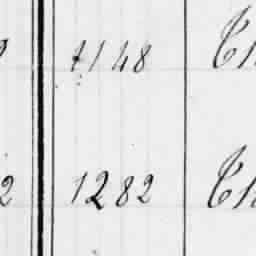 1148 Ch
2 1282 Ch